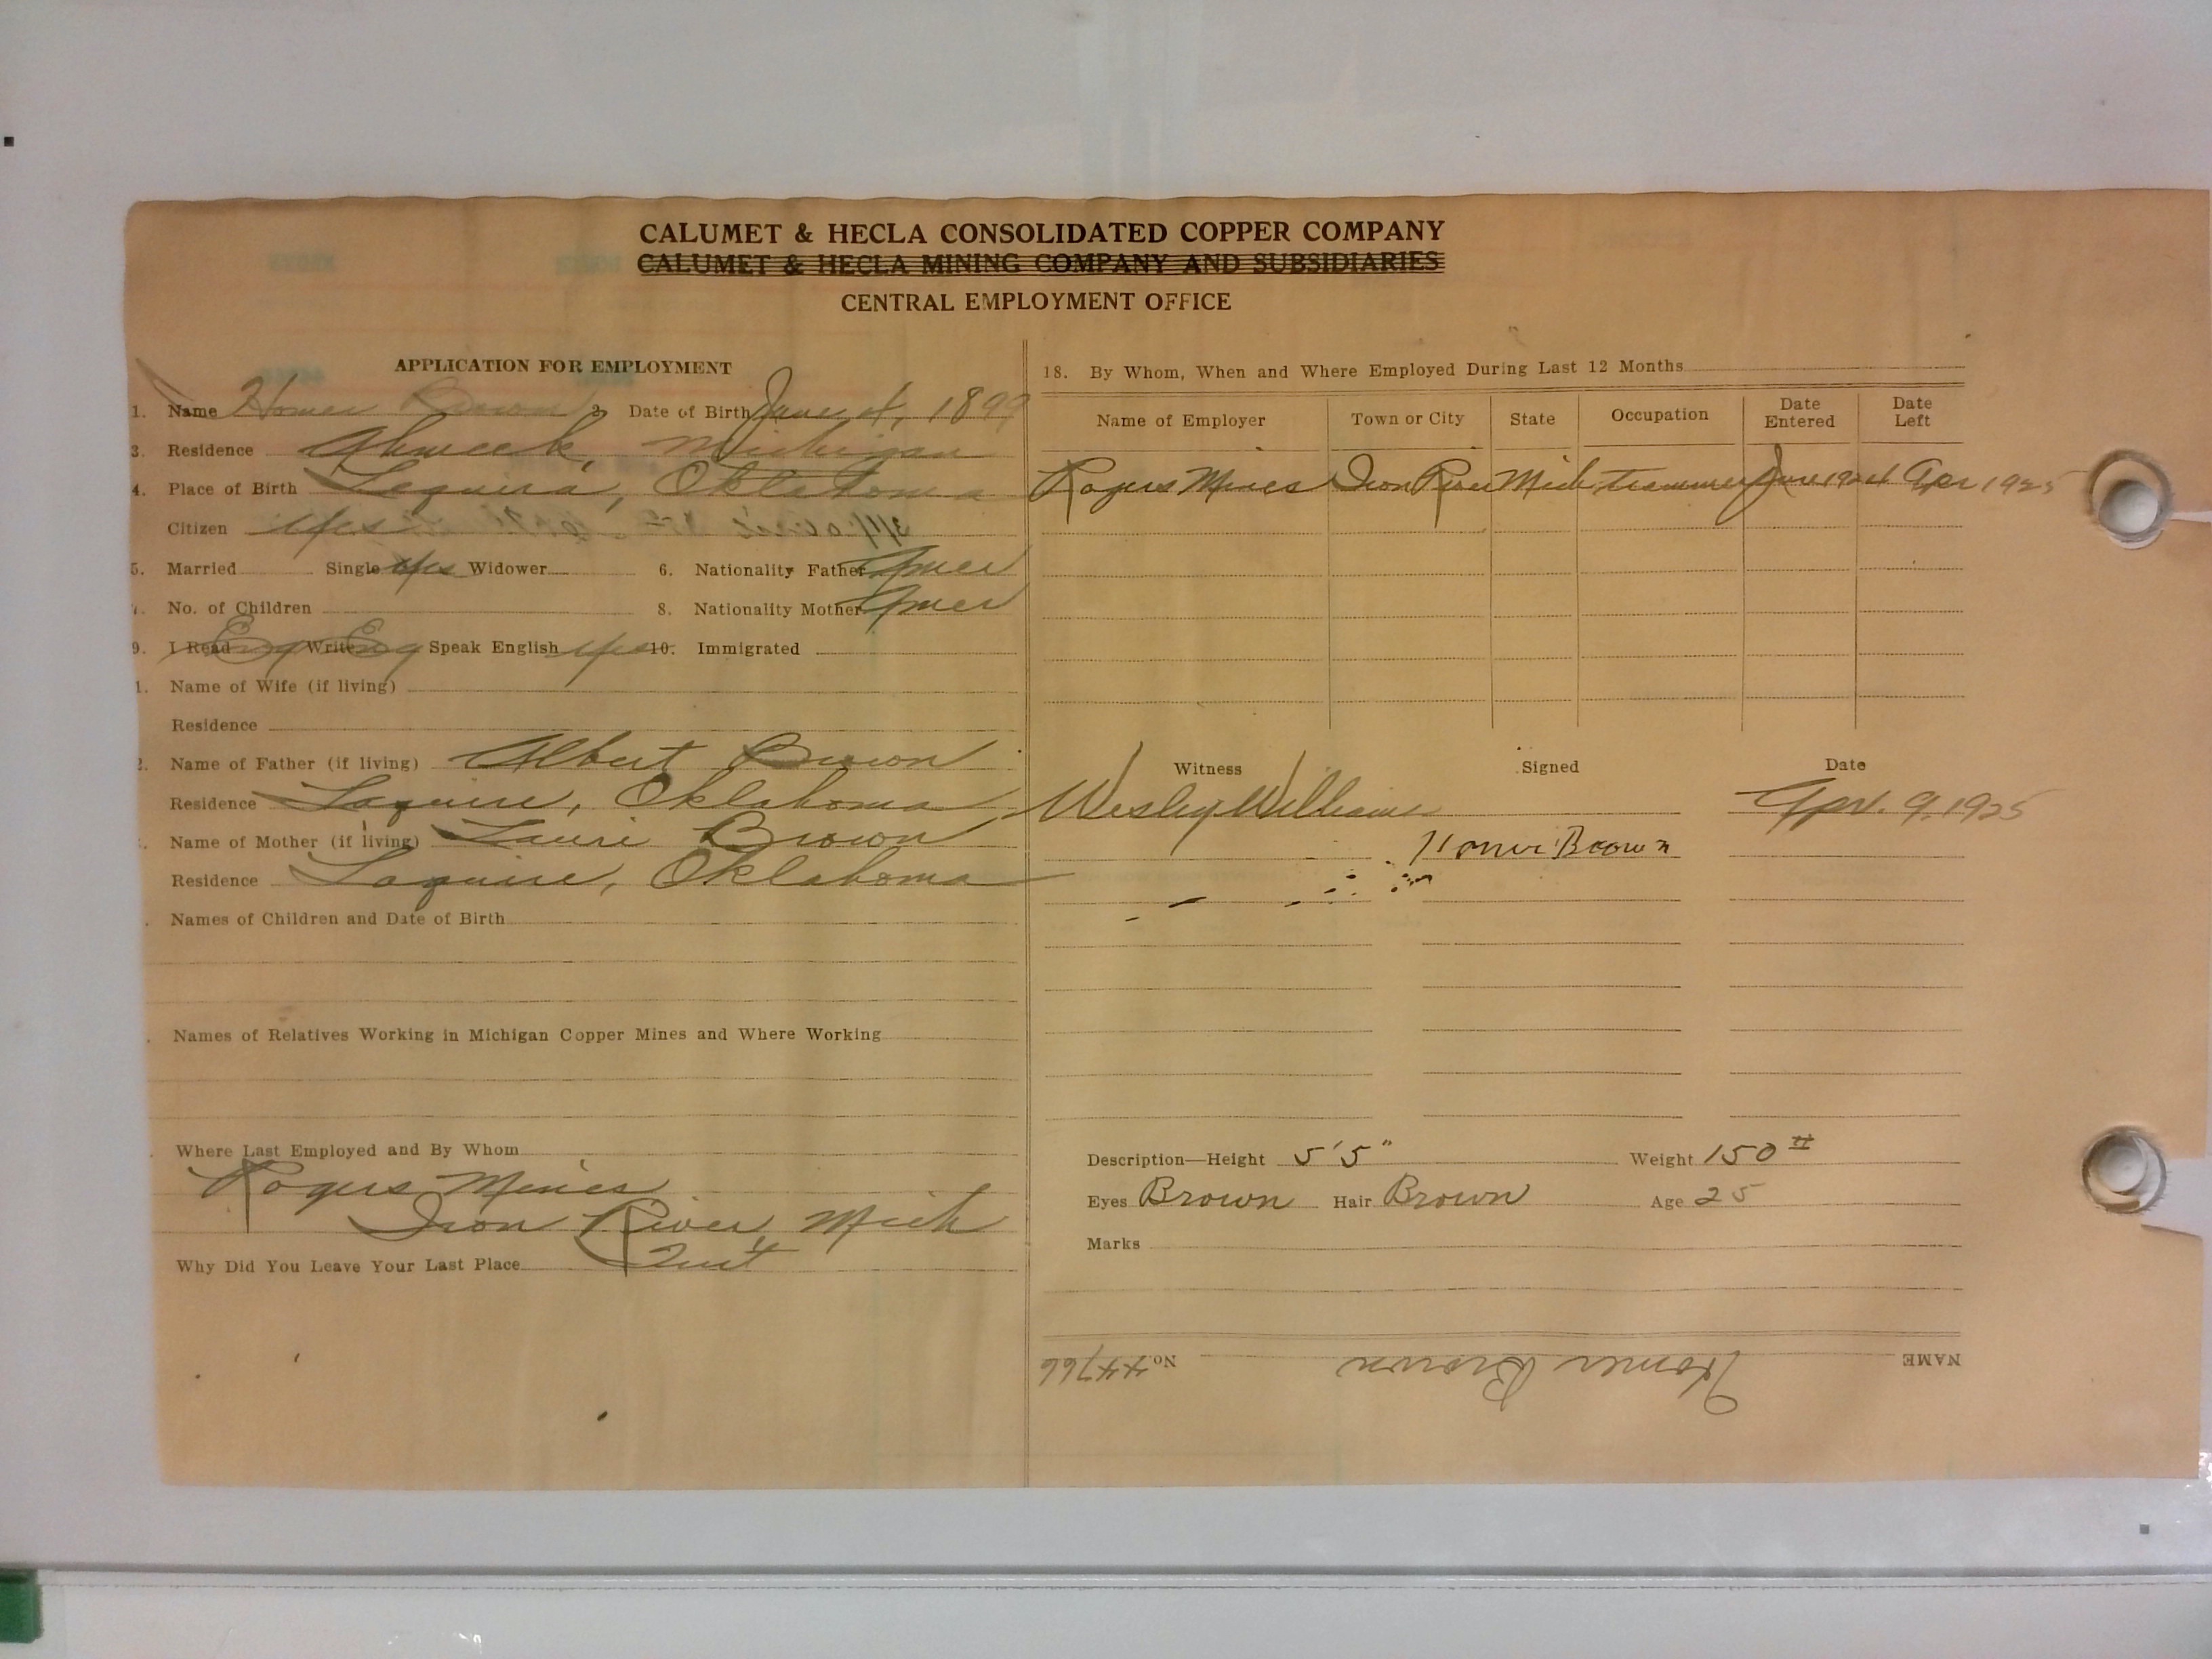 CALUMET & HECLA CONSOLIDATED COPPER COMPANY
CALUMET & HECLA MINING COMPANY AND SUBSIDIARIES
CENTRAL EMPLOYMENT OFFICE
APPLICATION FOR EMPLOYMENT
1. Name Homer Brown 2. Date of Birth June 4, 1899
3. Residence Ahmeek, Michigan
4. Place of Birth Lequira, Oklahoma
Citizen Yes
5. Married Single Yes Widower 6. Nationality Father Amer
7. No. of Children 8. Nationality Mother Amer
9. I Read Eng Write Eng Speak English Yes 10. Immigrated
1. Name of Wife (if living)
Residence
2. Name of Father (if living) Albert Brown
Residence Laquire, Oklahoma
Name of Mother (if living) Laure Brown
Residence Laquire, Oklahoma
Names of Children and Date of Birth
Names of Relatives Working in Michigan Copper Mines and Where Working
Where Last Employed and By Whom
Rogers Mines
Iron River, Mich
Why Did You Leave Your Last Place Quit
18. By Whom, When and Where Employed During Last 12 Months
Name of Employer Town or City State Occupation Date Entered Date Left
Rogers Mines Iron River Mich Trammer June 1924 Apr 1925
Witness Signed Date
Wesley Williams Apr. 9, 1925
Homer Brown
Description—Height 5'5" Weight 150#
Eyes Brown Hair Brown Age 25
Marks
NAME Homer Brown No. 44766